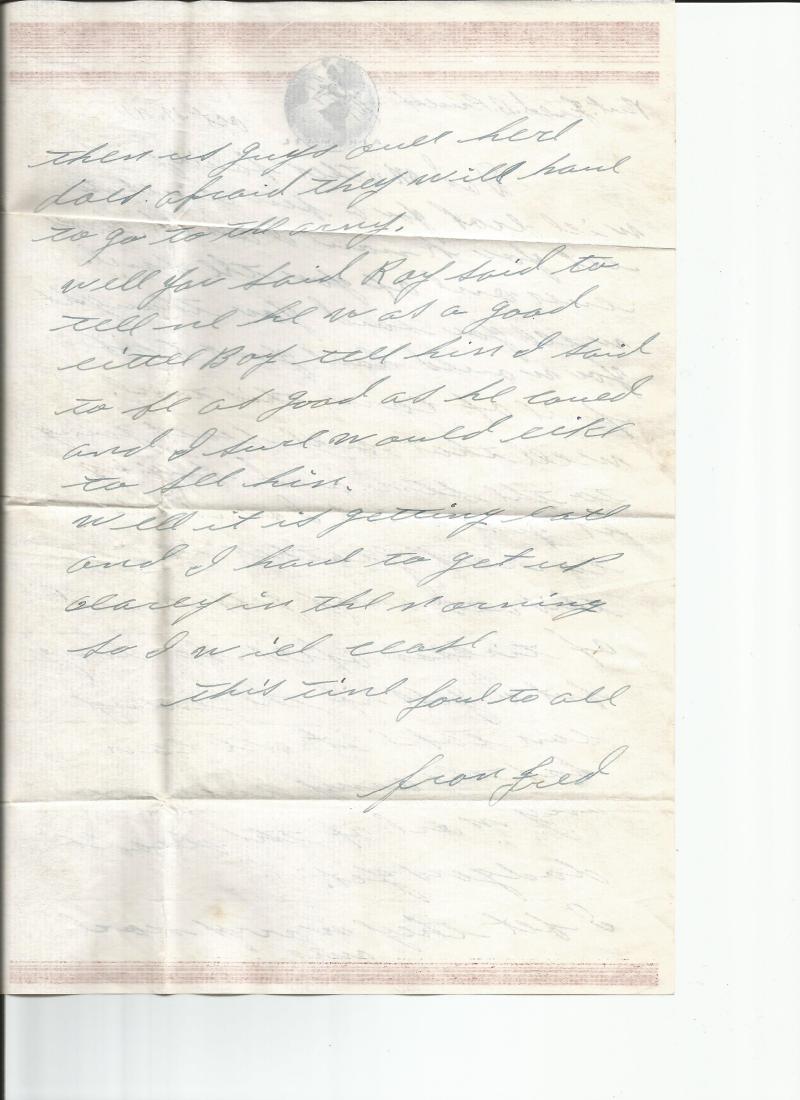 then us guys over here
does. afraid they will have
to go to the army.
well you said Roy said to
tell me he was a good
little Boy tell him I said
to be as good as he could
and I sure would like
to see him.
Well it is getting late
and I have to get up
early in the morning
so I will close
this time love to all
from Fred